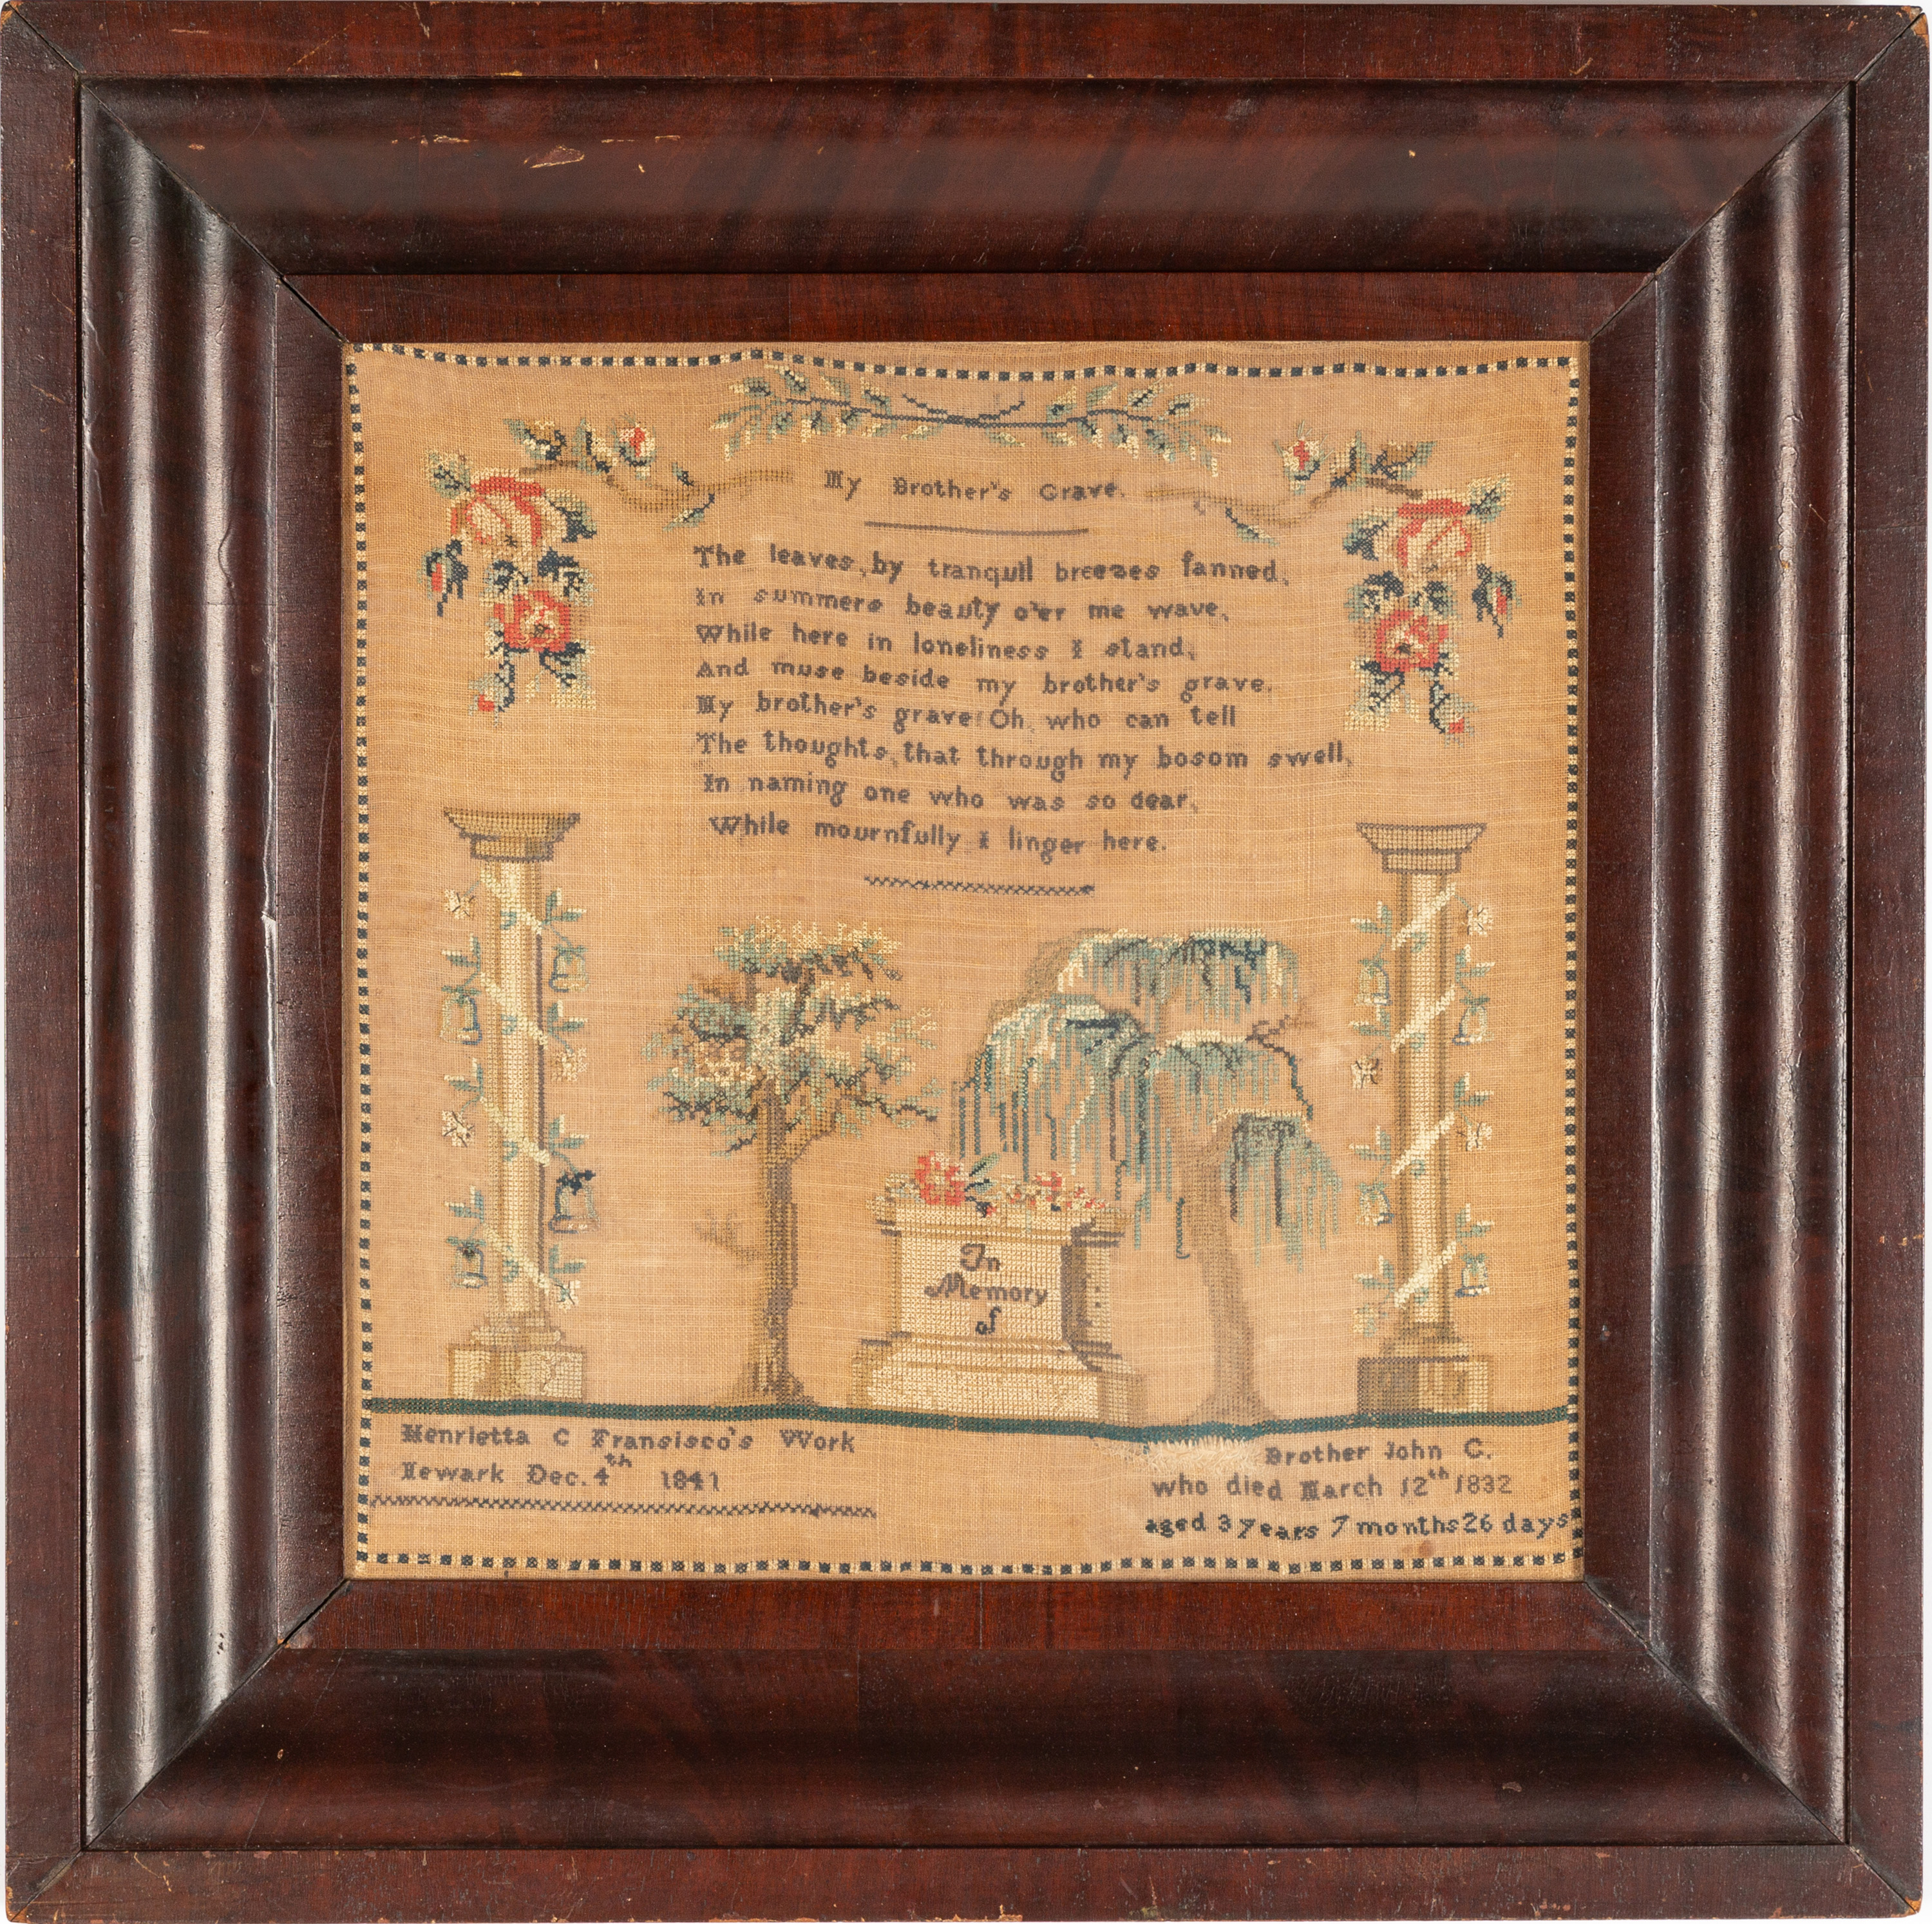 My Brother's Grave.
The leaves, by tranquil breezes fanned,
In summers beauty o'er me wave,
While here in loneliness I stand,
And muse beside my brother's grave.
My brother's grave! Oh, who can tell
The thoughts, that through my bosom swell,
In naming one who was so dear,
While mournfully I linger here.
In
Memory
of
Henrietta C Fransisco's Work
Newark Dec. 4th 1841
Brother John C.
who died March 12th 1832
aged 3 years 7 months 26 days